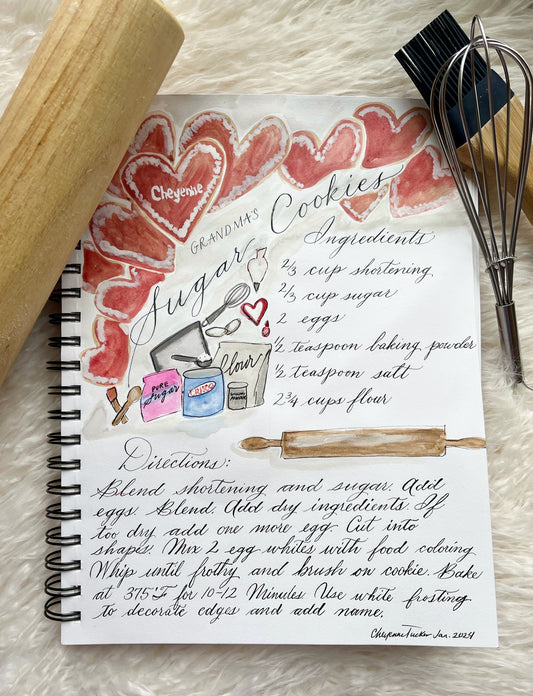 Cheyenne
GRANDMA'S
Sugar Cookies
Ingredients
2/3 cup shortening
2/3 cup sugar
2 eggs
1/2 teaspoon baking powder
1/2 teaspoon salt
2 3/4 cups flour
PURE
Sugar
CRISCO
flour
Directions:
Blend shortening and sugar. Add
eggs. Blend. Add dry ingredients. If
too dry add one more egg. Cut into
shapes. Mix 2 egg whites with food coloring
Whip until frothy and brush on cookie. Bake
at 375°F for 10-12 Minutes. Use white frosting
to decorate edges and add name.
Cheyenne Tucker Jan. 2024